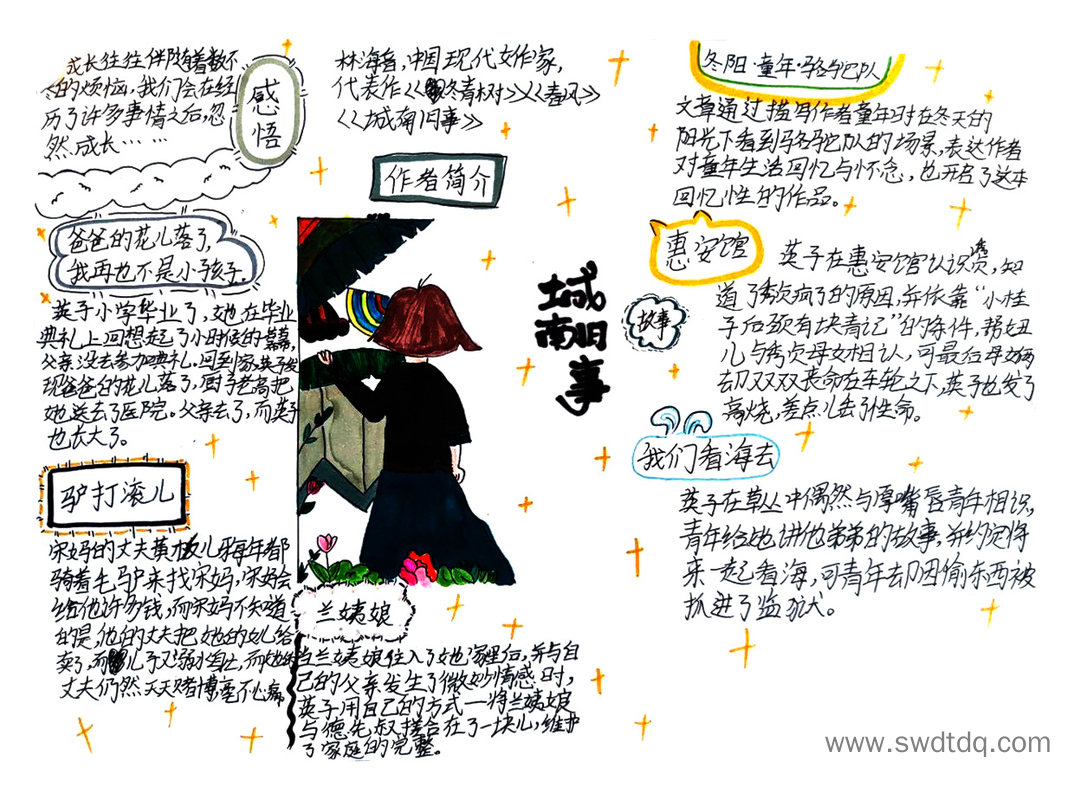 成长往往伴随着数不
的烦恼,我们会在经
历了许多事情之后,忽
然成长……
感悟
林海音,中国现代女作家,
代表作《《冬青树》》《《春风》》
《《城南旧事》》
作者简介
冬阳·童年·骆驼队
文章通过描写作者童年时在冬天的
阳光下看到骆驼队的场景,表达作者
对童年生活回忆与怀念,也开启了这本
回忆性的作品。
爸爸的花儿落了,
我再也不是小孩子。
英子小学毕业了,她在毕业
典礼上回想起了小时候的幕幕,
父亲没去参加典礼。回到家,英子发
现爸爸的花儿落了,厨子老高把
她送去了医院。父亲去了,而英子
也长大了。
城南旧事
故事
惠安馆
英子在惠安馆认识秀贞,知
道了秀贞疯了的原因,并依靠“小桂
子后颈有块青记”的条件,帮妞
儿与秀贞母女相认,可最后母女俩
却双双丧命在车轮之下,英子也发了
高烧,差点儿丢了性命。
我们看海去
英子在草丛中偶然与厚嘴唇青年相识,
青年给她讲他弟弟的故事,并约定将
来一起看海,可青年却因偷东西被
抓进了监狱。
驴打滚儿
宋妈的丈夫黄板儿每年都
骑着毛驴来找宋妈,宋妈会
给他许多钱,而宋妈不知道
的是,他的丈夫把她的女儿给
卖了,而儿子又溺水自上,而她的
丈夫仍然天天赌博毫不心痛
兰姨娘
当兰姨娘住入了她家里后,并与自
己的父亲发生了微妙情感时,
英子用自己的方式一将兰姨娘
与德先叔搓合在了一块儿,维护
了家庭的完整。
www.swdtdq.com